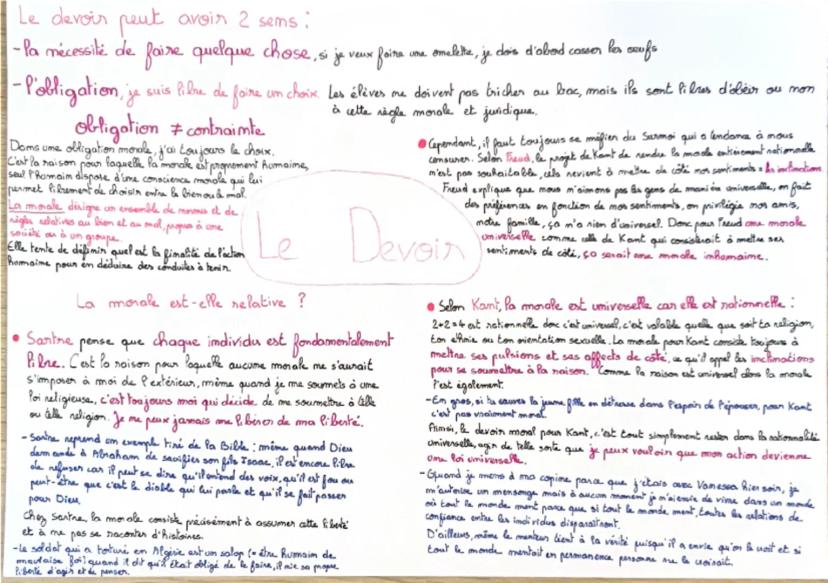 Le devoir peut avoir 2 sens :
- la nécessité de faire quelque chose, si je veux faire une omelette, je dois d'abord casser les œufs
- l'obligation, je suis libre de faire un choix. Les élèves ne doivent pas tricher au bac, mais ils sont libres d'obéir ou non
à cette règle morale et juridique.
obligation ≠ contrainte
Dans une obligation morale, j'ai toujours le choix.
C'est la raison pour laquelle la morale est proprement humaine,
seul l'humain dispose d'une conscience morale qui lui
permet librement de choisir entre le bien ou le mal.
La morale désigne un ensemble de normes et de
règles relatives au bien et au mal, propres à une
société ou à un groupe.
Elle tente de définir quel est la finalité de l'action
humaine pour en déduire des conduites à tenir.
Le Devoir
• Cependant, il faut toujours se méfier du Surmoi qui a tendance à nous
censurer. Selon Freud, le projet de Kant de rendre la morale entièrement rationnelle
n'est pas souhaitable, cela revient à mettre de côté nos sentiments = les inclinations.
Freud explique que nous n'aimons pas les gens de manière universelle, on fait
des préférences en fonction de nos sentiments, on privilégie nos amis,
notre famille, ça n'a rien d'universel. Donc pour Freud une morale
universelle comme celle de Kant qui consisterait à mettre ses
sentiments de côté, ça serait une morale inhumaine.
La morale est-elle relative ?
• Sartre pense que chaque individu est fondamentalement
libre. C'est la raison pour laquelle aucune morale ne saurait
s'imposer à moi de l'extérieur, même quand je me soumets à une
loi religieuse, c'est toujours moi qui décide de me soumettre à telle
ou telle religion. Je ne peux jamais me libérer de ma liberté.
- Sartre reprend un exemple tiré de la Bible : même quand Dieu
demande à Abraham de sacrifier son fils Isaac, il est encore libre
de refuser car il peut se dire qu'il entend des voix, qu'il est fou ou
peut-être que c'est le diable qui lui parle et qu'il se fait passer
pour Dieu.
Chez Sartre, la morale consiste précisément à assumer cette liberté
et à ne pas se raconter d'histoires.
- Le soldat qui a torturé en Algérie est un salop (= être humain de
mauvaise foi) quand il dit qu'il était obligé de le faire, il nie sa propre
liberté d'agir et de penser.
• Selon Kant, la morale est universelle car elle est rationnelle :
2+2=4 est rationnelle donc c'est universel, c'est valable quelle que soit ta religion,
ton ethnie ou ton orientation sexuelle. La morale pour Kant consiste toujours à
mettre ses pulsions et ses affects de côté, ce qu'il appel les inclinations
pour se soumettre à la raison. Comme la raison est universel donc la morale
l'est également.
- En gros, si tu sauves la jeune fille en détresse dans l'espoir de l'épouser, pour Kant
c'est pas vraiment moral.
Ainsi, le devoir moral pour Kant, c'est tout simplement rester dans la rationnalité
universelle, agir de telle sorte que je peux vouloir que mon action devienne
une loi universelle.
- Quand je mens à ma copine parce que j'étais avec Vanessa hier soir, je
m'autorise un mensonge mais à aucun moment je n'ai envie de vivre dans un monde
où tout le monde ment parce que si tout le monde ment, toutes les relations de
confiance entre les individus disparaitront.
D'ailleurs, même le menteur tient à la vérité puisqu'il a envie qu'on le croit et si
tout le monde mentait en permanence personne ne le croirait.